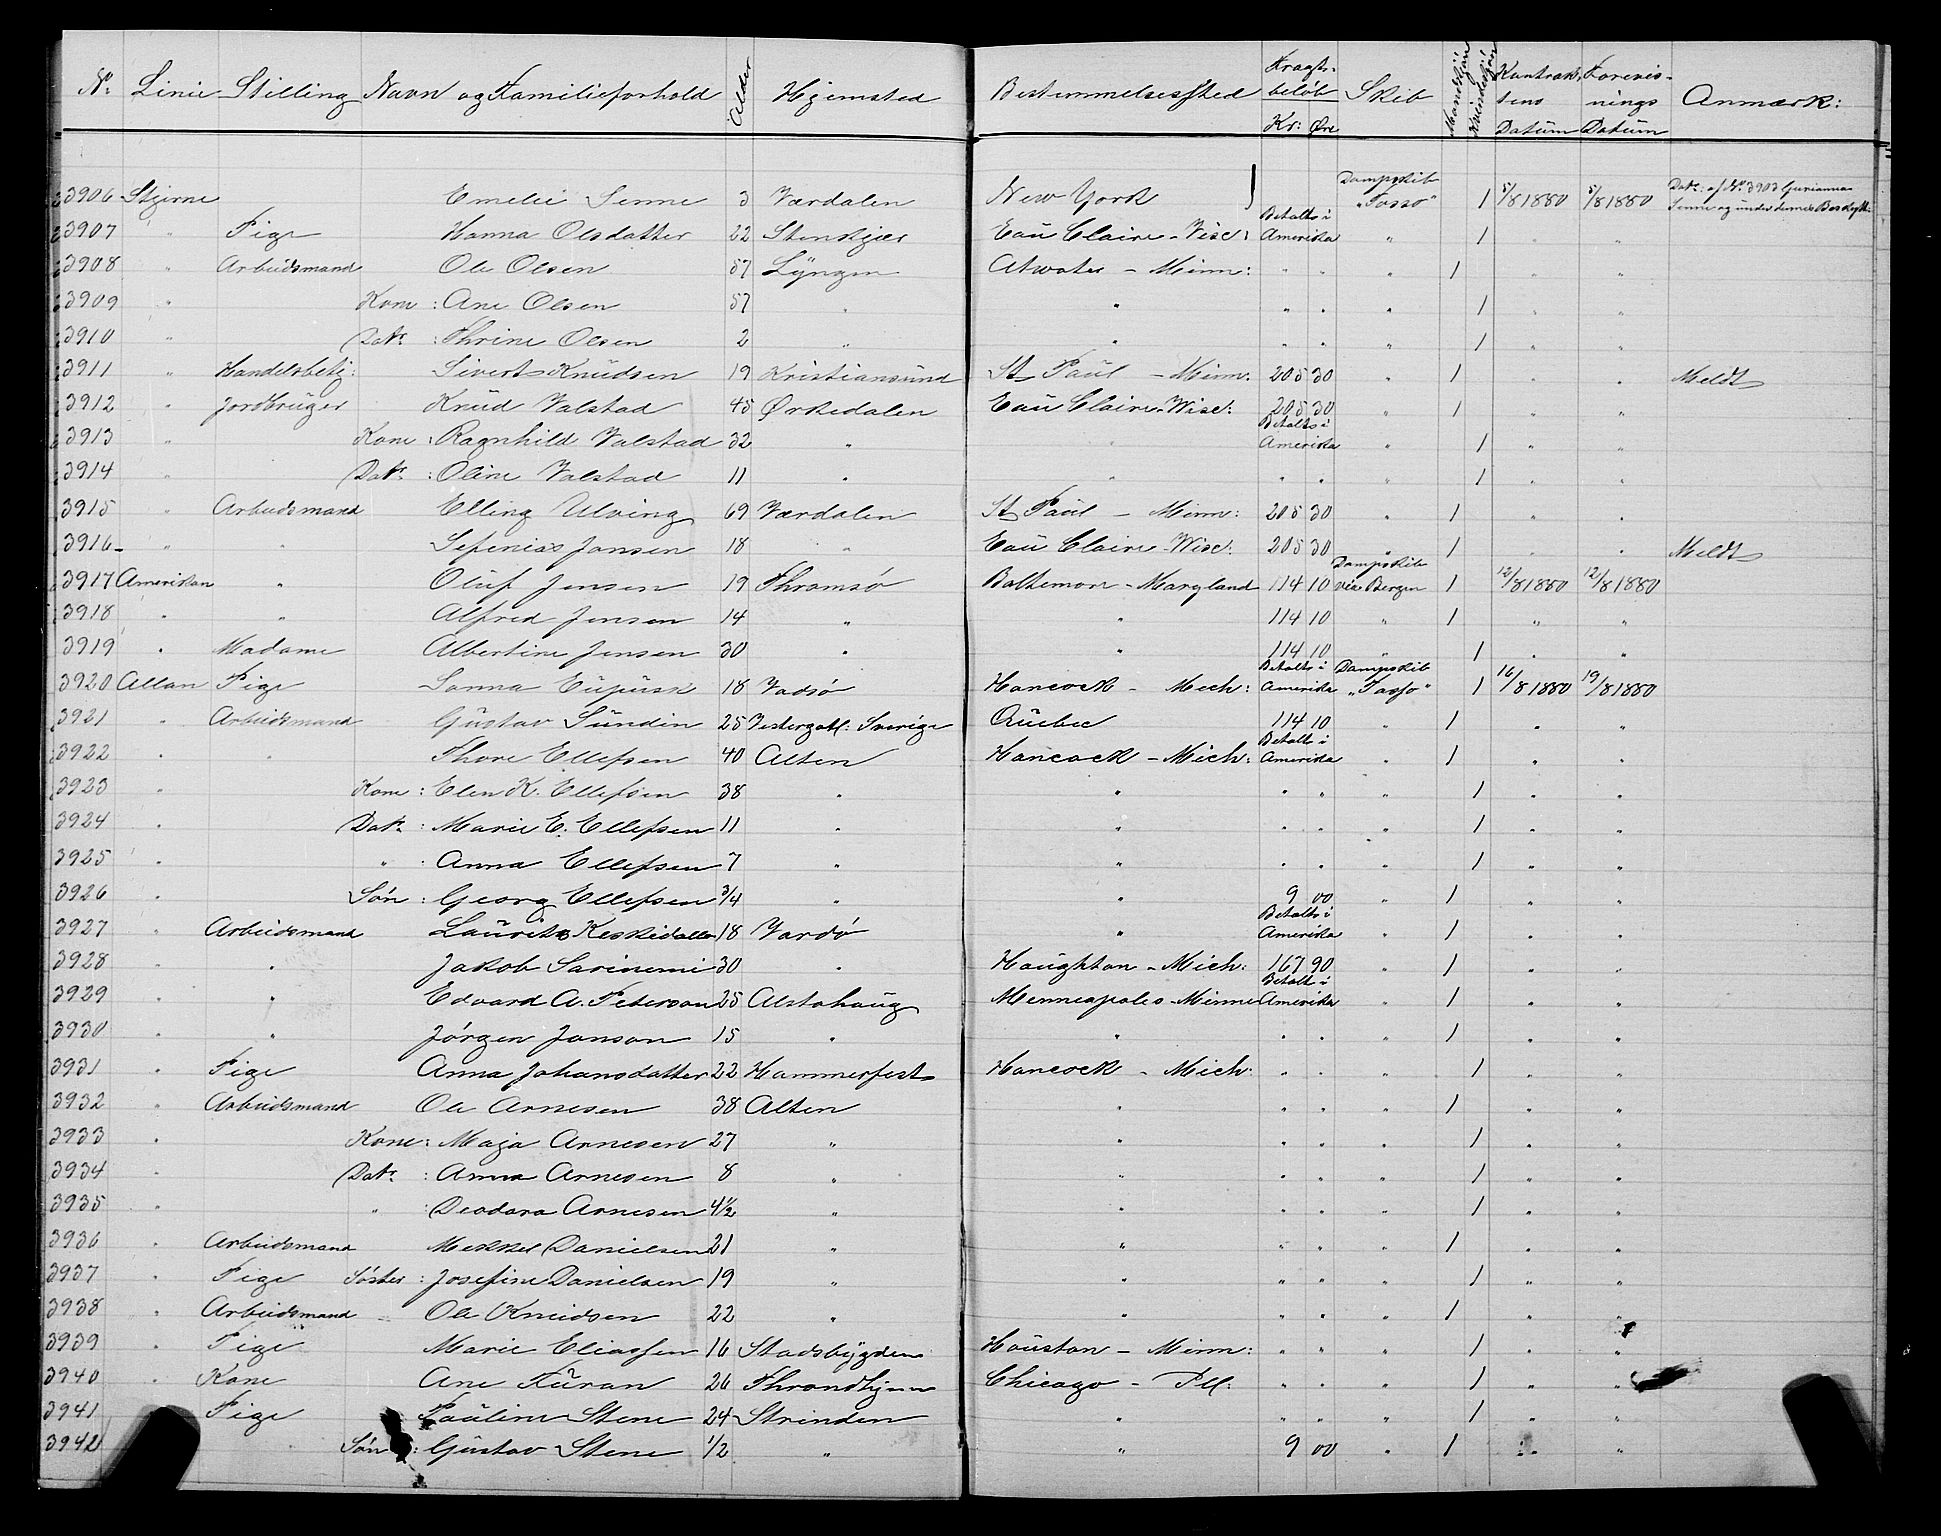 No Linie Stilling Navn og Familieforhold Alder Hjemsted Bestemmelsessted Fragtbeløb Kr: Øre Skib Mandkjön Kvindekjön Kontraktens Datum Forevisnings Datum Anmærk:
3906 Stjerne Emelie Senne 3 Værdalen New York Dampskib "Tasso" 1 5/8 1880 5/8 1880 Datr: af No 3903 Senne og under dennes
3907 " Pige Hanna Olsdatter 22 Stenkjær Eau Claire - Wisc: Betalt i Amerika " 1 " "
3908 " Arbeidsmand Ole Olsen 57 Lyngen Atwater - Minn: " " " 1 " "
3909 " Kone : Ane Olsen 57 " " " " " 1 " "
3910 " Datr : Thrine Olsen 2 " " " " " 1 " "
3911 " Handelsbetj: Sivert Knudsen 19 Kristiansund St Paul - Minn: 205 30 " 1 " " Meldt
3912 " Jordbruger Knud Valstad 45 Ørkedalen Eau Claire - Wisc: 205 30 " 1 " "
3913 " Kone : Ragnhild Valstad 32 " " Betalt i Amerika " 1 " "
3914 " Datr : Oline Valstad 11 " " " " " 1 " "
3915 " Arbeidsmand Elling Ulving 69 Værdalen St Paul - Minn: 205 30 " 1 " "
3916 " " Sefenias Jansen 18 " Eau Claire - Wisc: 205 30 " 1 " " Meldt
3917 Amerikan " Oluf Jensen 19 Thromsø Baltemore - Maryland 114 10 Dampskib via Bergen 1 12/8 1880 12/8 1880
3918 " " Alfred Jensen 14 " " 114 10 " 1 " "
3919 " Madame Albertine Jensen 30 " " 114 10 " 1 " "
3920 Allan Pige Sanna 18 Vadsø Hancock - Mich: Betalt i Amerika Dampskib "Tasso" 1 16/8 1880 19/8 1880
3921 " Arbeidsmand Gustav Sundin 25 Vestergotl: Sverige Quebec 114 10 " 1 " "
3922 " " Thore Ellefsen 40 Alten Hancock - Mich: Betalt i Amerika " 1 " "
3923 " Kone : Elen K. Ellefsen 38 " " " " " 1 " "
3924 " Datr : Marie E. Ellefsen 11 " " " " " 1 " "
3925 " " : Anna Ellefsen 7 " " " " " 1 " "
3926 " Søn : Georg Ellefsen 3/4 " " 9 00 " 1 " "
3927 " Arbeidsmand Laurits 18 Vardø " Betalt i Amerika " 1 " "
3928 " " Jakob Sarinemi 30 " Haughton - Mich: 167 90 " 1 " "
3929 " " Edvard A. Peterson 25 Alstahaug Menneapoles - Minne Betalt i Amerika " 1 " "
3930 " " Jörgen Janson 15 " " " " " 1 " "
3931 " Pige Anna Johansdatter 22 Hammerfest Hancock - Mich: " " " 1 " "
3932 " Arbeidsmand Ole Arnesen 38 Alten " " " " 1 " "
3933 " Kone : Maja Arnesen 27 " " " " " 1 " "
3934 " Datr : Anna Arnesen 8 " " " " " 1 " "
3935 " " : Deodara Arnesen 4½ " " " " " 1 " "
3936 " Arbeidsmand Mekkel Danielsen 21 " " " " " 1 " "
3937 " Pige Søster : Josefine Danielsen 19 " " " " " 1 " "
3938 " Arbeidsmand Ole Knudsen 22 " " " " " 1 " "
3939 " Pige Marie Eliassen 16 Stadsbygden Houston - Minn: " " " 1 " "
3940 " Kone Ane Furan 26 Throndhjem Chicago - Ill: " " " 1 " "
3941 " Pige Pauline Stene 24 Strinden " " " " 1 " "
3942 " Søn : Gustav Stene 1/2 " " 9 00 " 1 " "